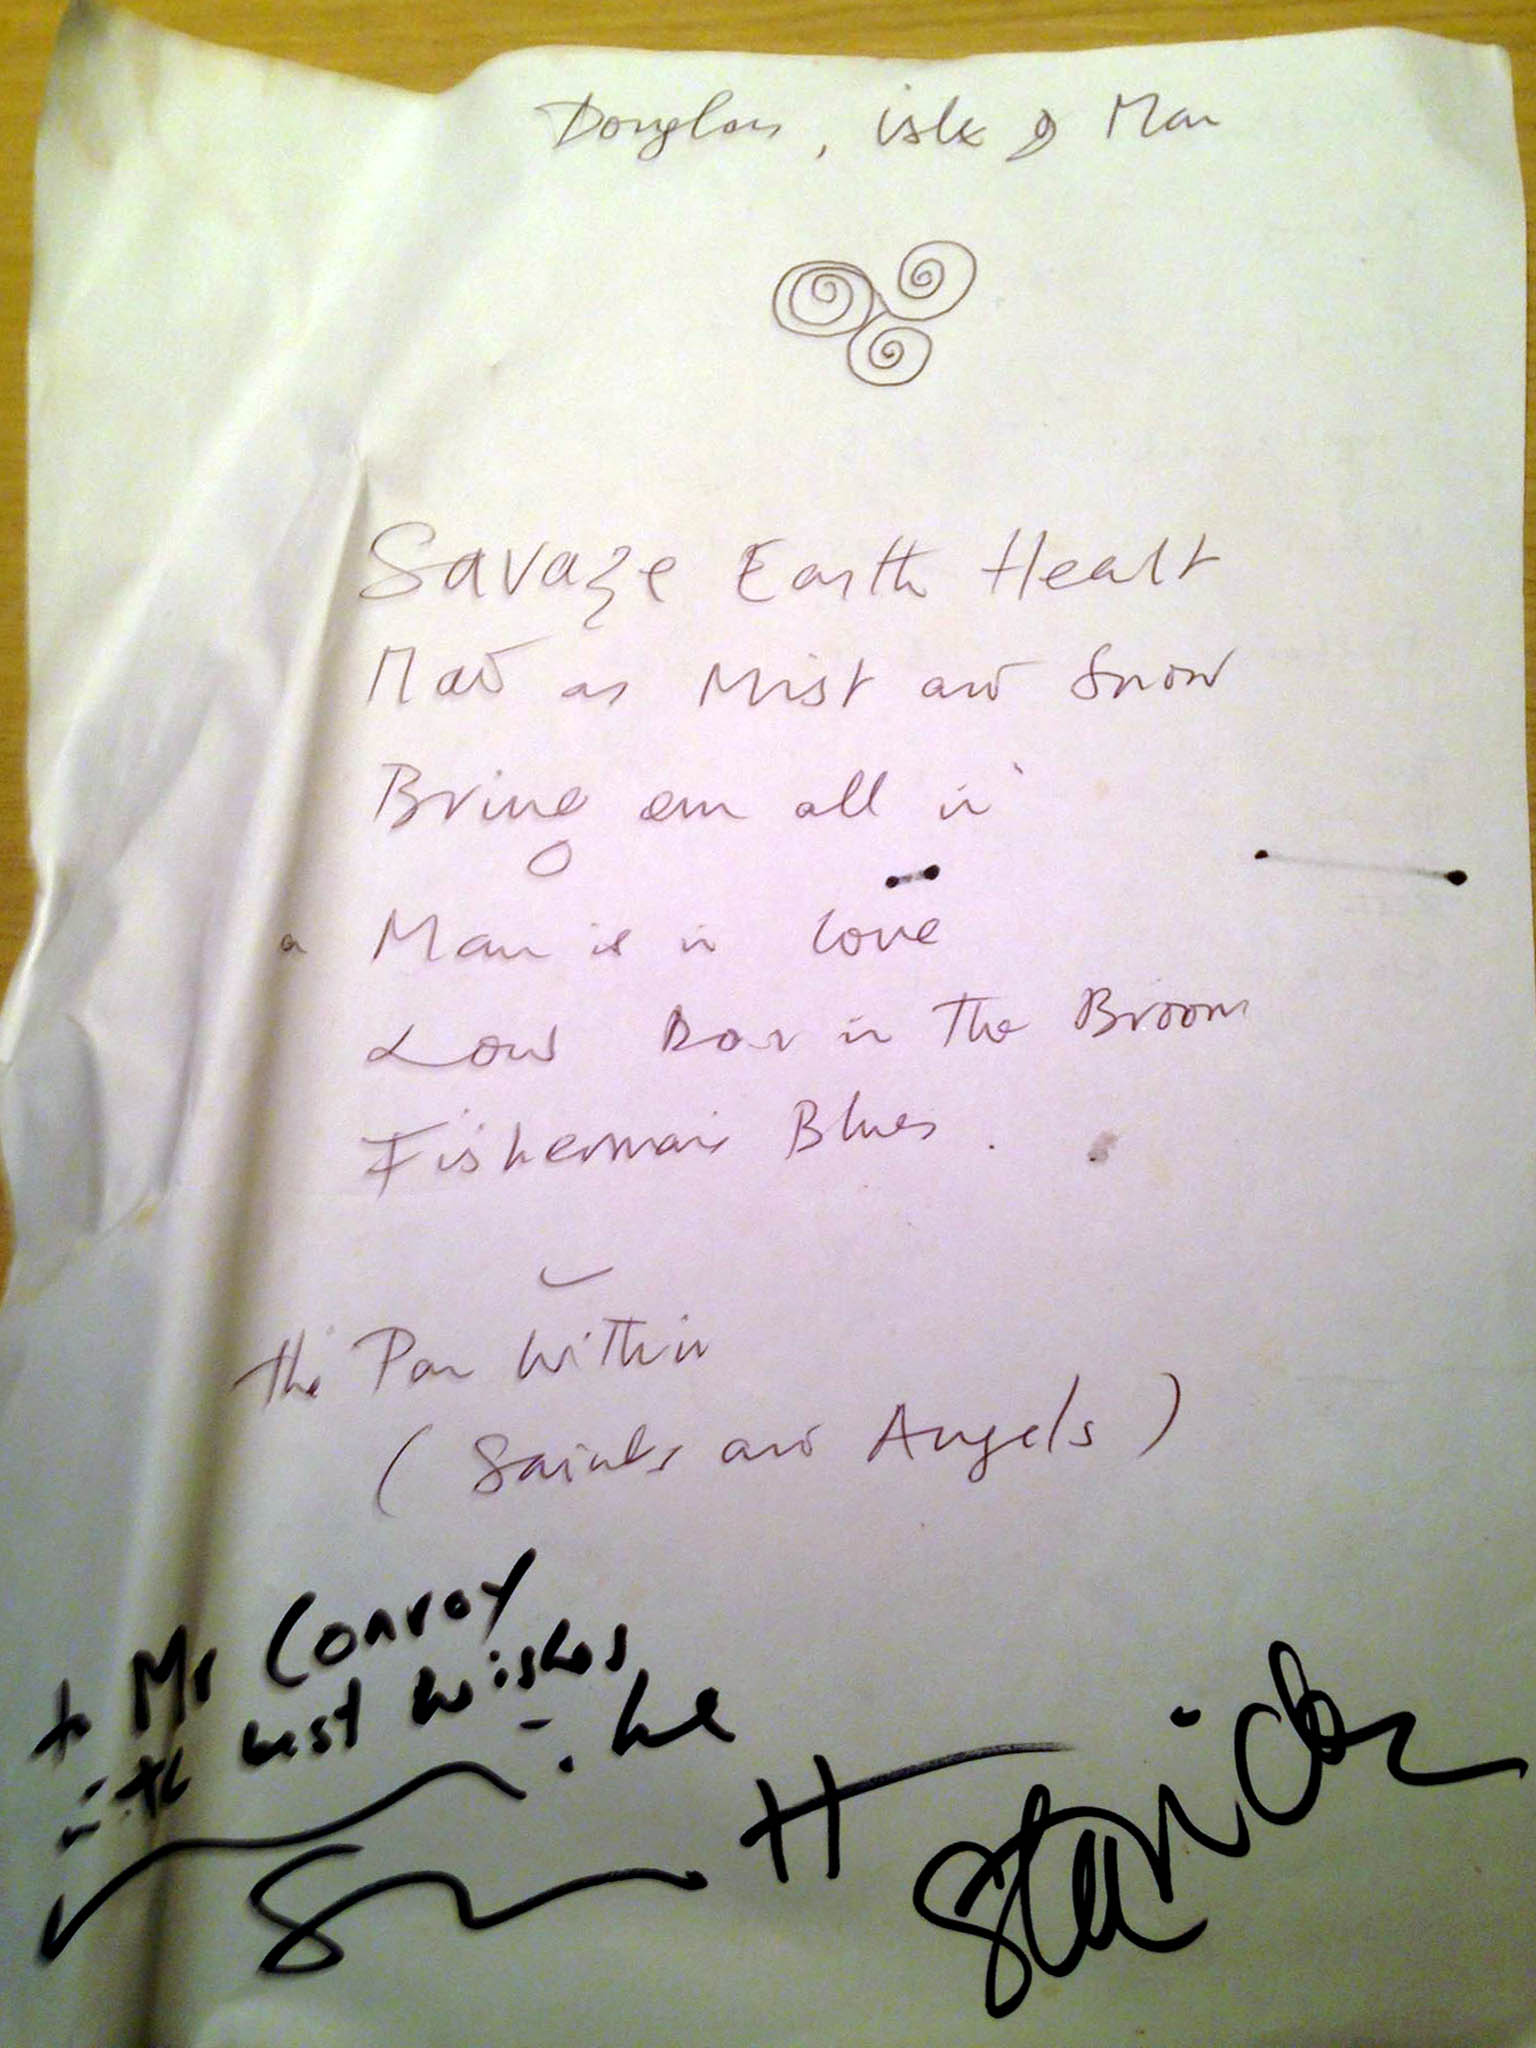 Douglas, isle of Man
Savage Earth Heart
Mad as Mist and Snow
Bring em all in
a Man is in love
Low Down in the Broom
Fisherman's Blues.
the Pan Within
(Saints and Angels)
to Mr Conroy
with best wishes